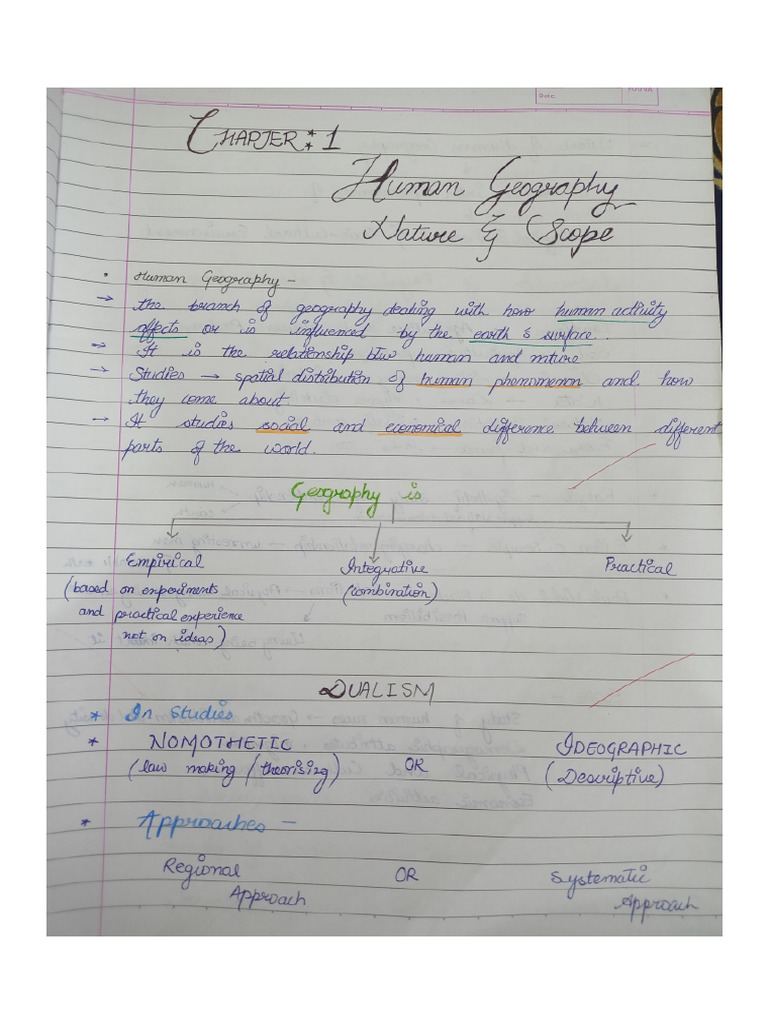 Date
YOUVA
CHAPTER : 1
Human Geography
Nature & Scope
• Human Geography –
→ the branch of geography dealing with how human activity
affects or is influenced by the earth's surface.
→ It is the relationship btw human and nature
→ Studies → spatial distribution of human phenomenon and how
they come about.
→ It studies social and economical difference between different
parts of the world.
Geography is
Empirical Integrative Practical
(based on experiments (combination)
and practical experience
not on ideas)
DUALISM
* In Studies
* NOMOTHETIC OR IDEOGRAPHIC
(law making / theorising) (Descriptive)
* Approaches –
Regional OR Systematic
Approach Approach